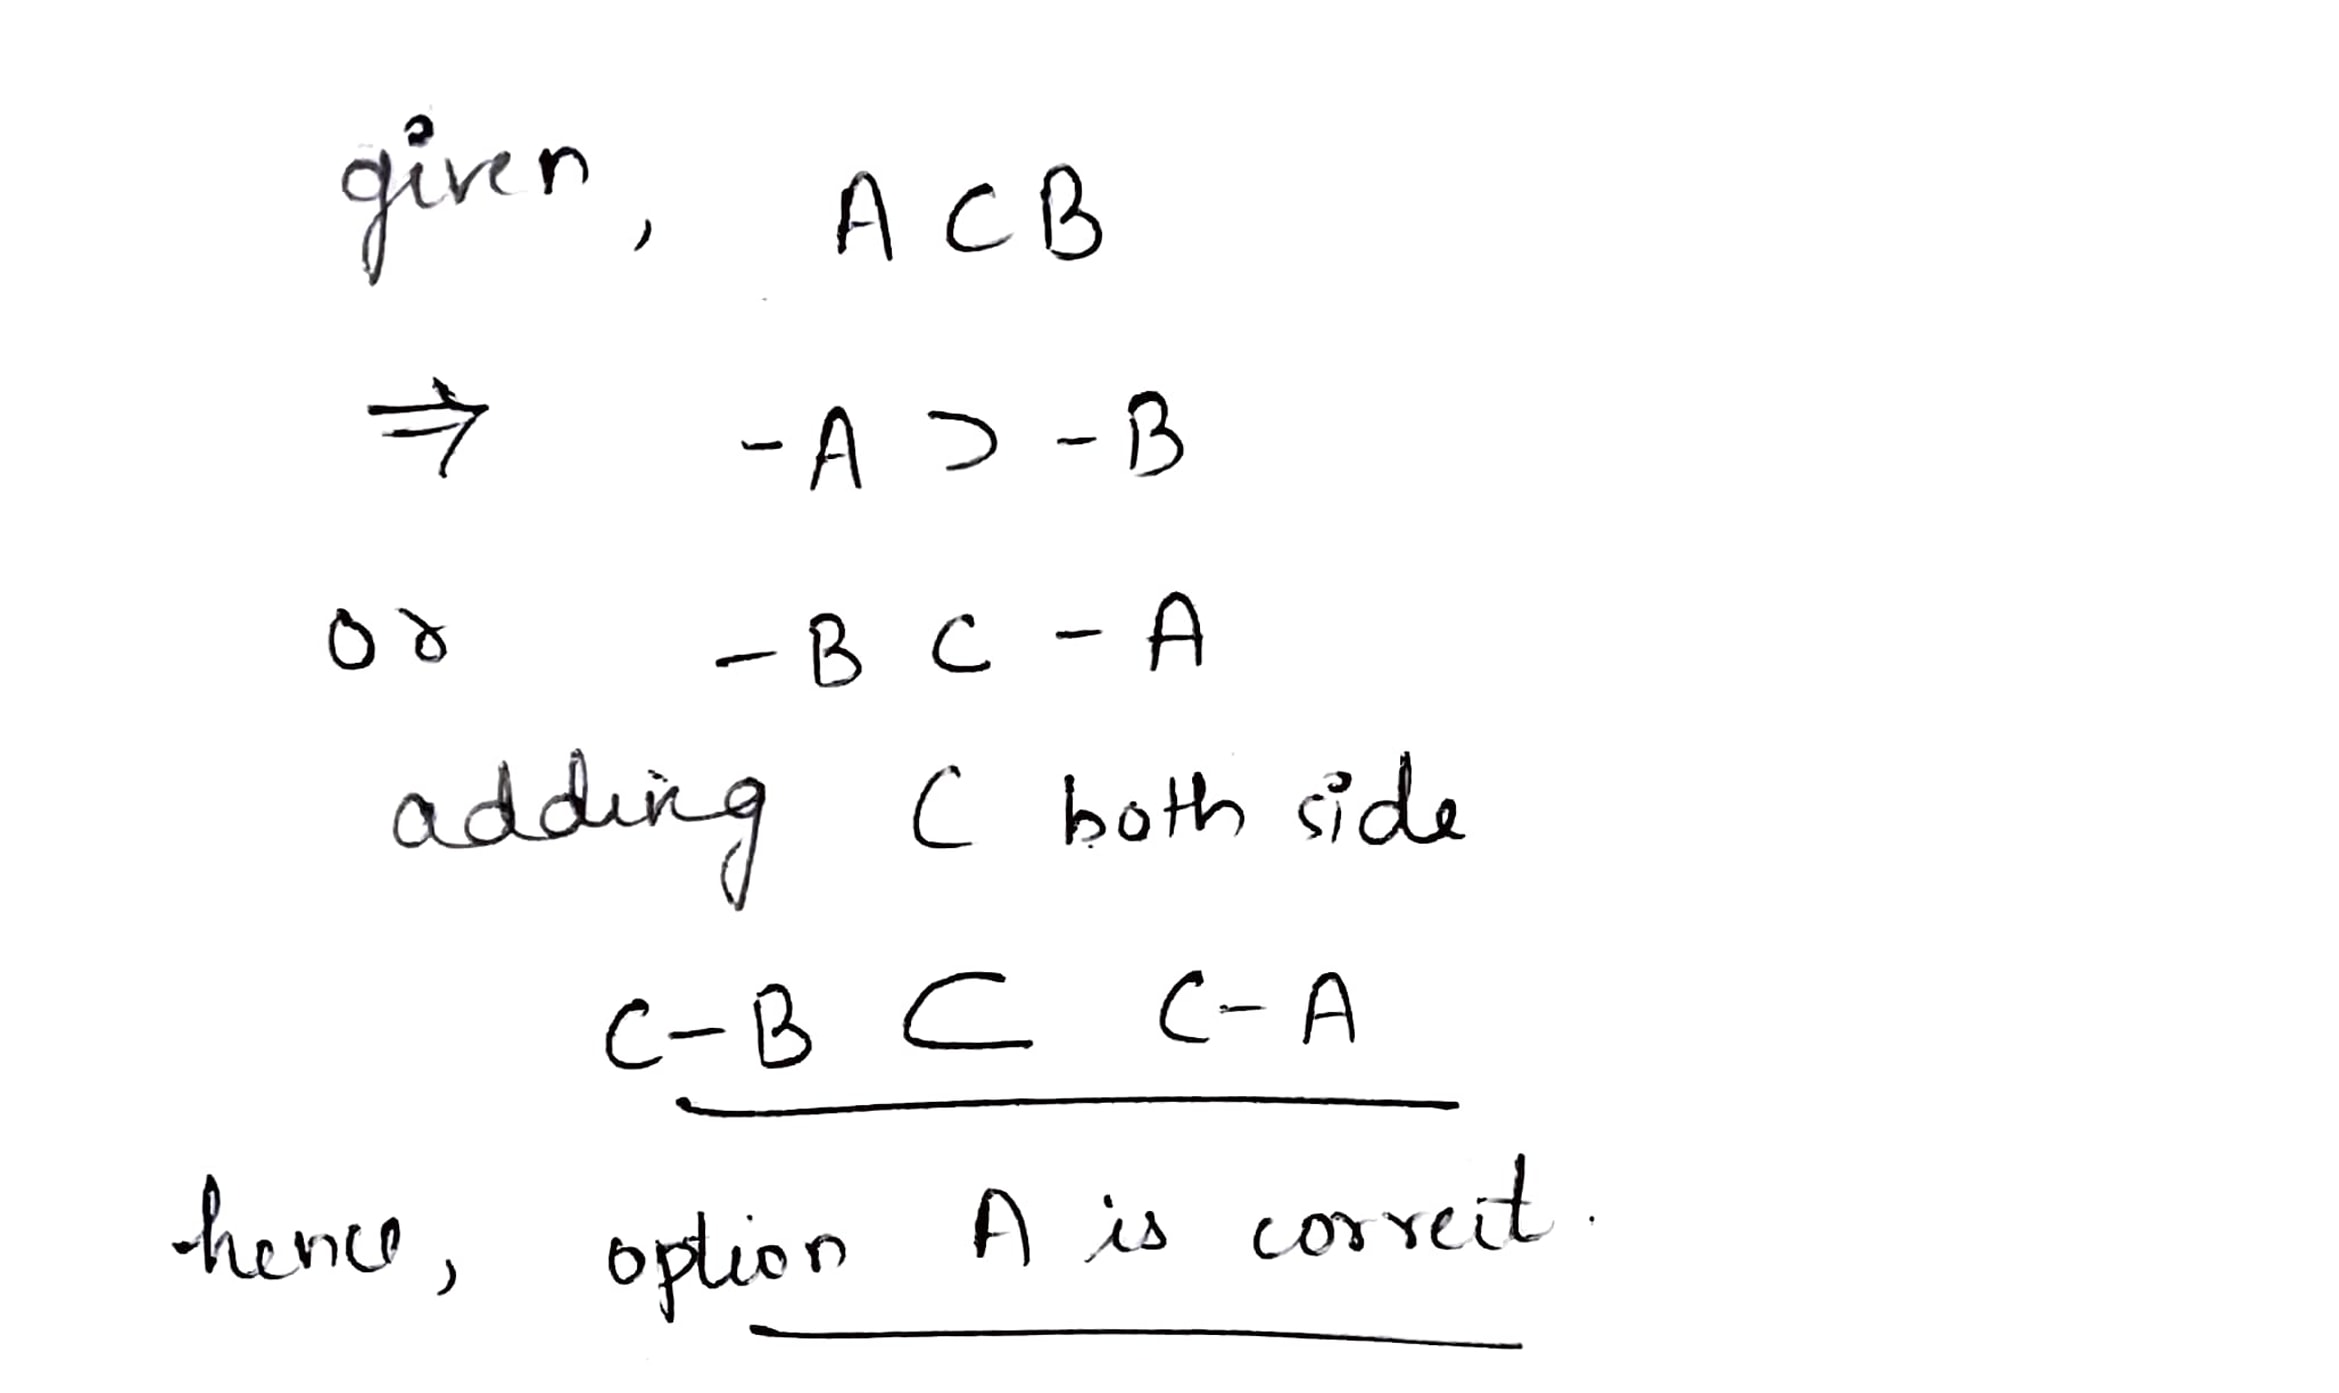 given, A ⊂ B
⇒ -A ⊃ -B
or -B ⊂ -A
adding C both side
C-B ⊂ C-A
hence, option A is correct.